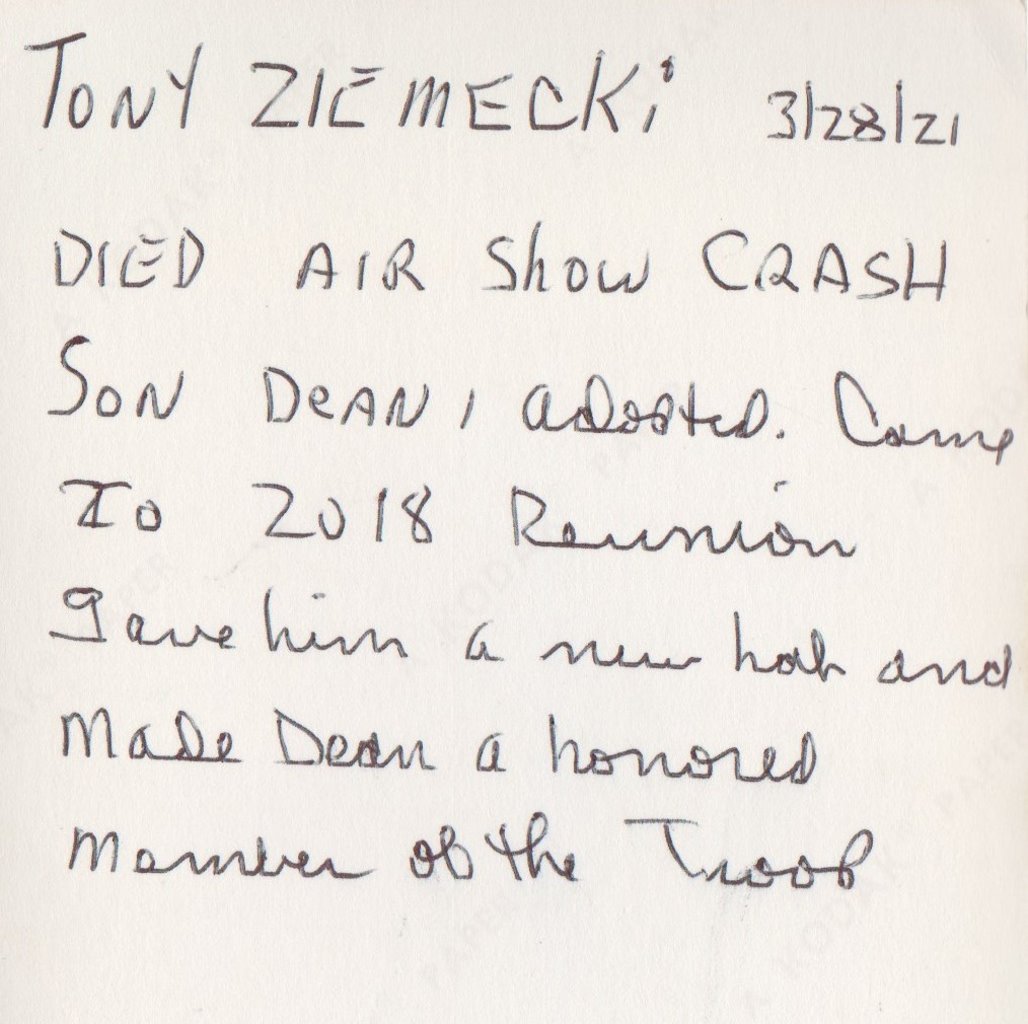 TONY ZIEMECKi 3/28/21
DIED AIR Show CRASH
SON DeAN, adopted. Came
To 2018 Reunion
Gave him a new hat and
Made Dean a honored
Member of the Troop